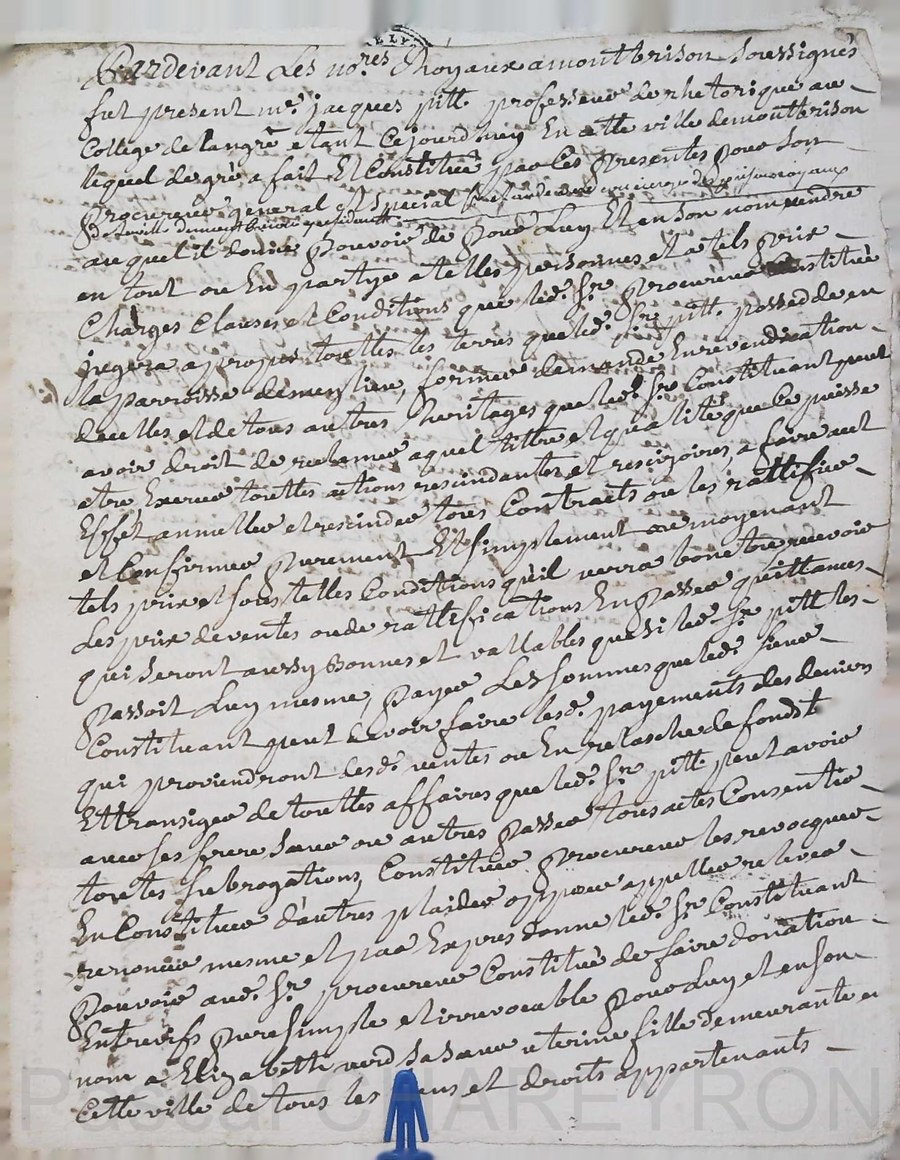 Pardevant Les no.res Royaux a montbrison Soussignés
fut present me. jacques pitt. professeur de rhetorique au
College de langre etant Cejourdhuy En cette ville demontbrison
lequel degré a fait Et Constitué par Ces presentes pour son
procureur general et special
auquel il donne pouvoir de pour Luy Et en son nom vendre
en tout ou En partye a telles personnes et a tels prix
Charges Clauses et Conditions que led. Sr. procureur Constitué
jugera apropos touttes les terres que led. Sr. pitt. possedde en
la parroisse de former demande En revendication
dicelles et de tous autres heritages que led. Sr. Constituant peut
avoir droit de reclamer a quel tittre et qualité que Ce puisse
etre Exercer touttes actions rescindantes et rescizoires, a faire aut
Effet annuller et rescinder tous Contracts ou les rattifier
et Confirmer purement Et simplement ou moyenant
tels prix et sous telles Conditions quil verra bon etre recevoir
Les prix de ventes ou de rattifications En passer quittances
qui seront aussy Bonnes et vallables que si led. Sr. pitt. les
passoit Luy mesme, payer Les sommes que led. sieur
Constituant peut devoir faire lesd. payements des deniers
qui proviendront desd. ventes ou En relasche de fondst
Et transiger de touttes affaires que led. Sr. pitt. peut avoir
avec ses frere Sœur ou autres passer tous actes Consentir
touttes subrogations, Constituer procureur les revocquer
En Constituer d'autres plaider opposer appeller relever
renoncer mesme et par Expres donne led. Sr. Constituant
pouvoir aud. Sr. procureur Constitué de faire donation
Entrevifs pure simple et irrevocable pour Luy et en son
nom a Elizabeth verd sa sœur uterine fille demeurante en
Cette ville de tous les biens et droits appartenants
Pascal CHAREYRON